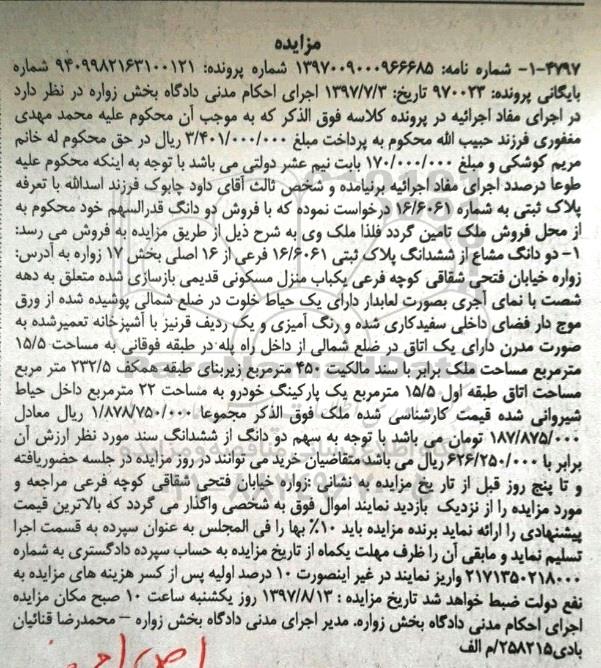 مزایده
۱-۴۷۹۷- شماره نامه: ۱۳۹۷۰۰۹۰۰۰۹۶۶۶۸۵ شماره پرونده: ۹۴۰۹۹۸۲۱۶۳۱۰۰۱۲۱ شماره
بایگانی پرونده: ۹۷۰۰۲۳ تاریخ: ۱۳۹۷/۷/۳ اجرای احکام مدنی دادگاه بخش زواره در نظر دارد
در اجرای مفاد اجرائیه در پرونده کلاسه فوق الذکر که به موجب آن محکوم علیه محمد مهدی
مغفوری فرزند حبیب الله محکوم به پرداخت مبلغ ۳/۴۰۱/۰۰۰/۰۰۰ ریال در حق محکوم له خانم
مریم کوشکی و مبلغ ۱۷۰/۰۰۰/۰۰۰ بابت نیم عشر دولتی می باشد با توجه به اینکه محکوم علیه
طوعا درصدد اجرای مفاد اجرائیه برنیامده و شخص ثالث آقای داود چابوک فرزند اسدالله با تعرفه
پلاک ثبتی به شماره ۱۶/۶۰۶۱ درخواست نموده که با فروش دو دانگ قدرالسهم خود محکوم به
از محل فروش ملک تامین گردد فلذا ملک وی به شرح ذیل از طریق مزایده به فروش می رسد:
۱- دو دانگ مشاع از ششدانگ پلاک ثبتی ۱۶/۶۰۶۱ فرعی از ۱۶ اصلی بخش ۱۷ زواره به آدرس:
زواره خیابان فتحی شقاقی کوچه فرعی یکباب منزل مسکونی قدیمی بازسازی شده متعلق به دهه
شصت با نمای آجری بصورت لعابدار دارای یک حیاط خلوت در ضلع شمالی پوشیده شده از ورق
موج دار فضای داخلی سفیدکاری شده و رنگ آمیزی و یک ردیف قرنیز با آشپزخانه تعمیرشده به
صورت مدرن دارای یک اتاق در ضلع شمالی از داخل راه پله در طبقه فوقانی به مساحت ۱۵/۵
مترمربع مساحت ملک برابر با سند مالکیت ۴۵۰ مترمربع زیربنای طبقه همکف ۲۳۲/۵ متر مربع
مساحت اتاق طبقه اول ۱۵/۵ مترمربع یک پارکینگ خودرو به مساحت ۲۲ مترمربع داخل حیاط
شیروانی شده قیمت کارشناسی شده ملک فوق الذکر مجموعا ۱/۸۷۸/۷۵۰/۰۰۰ ریال معادل
۱۸۷/۸۷۵/۰۰۰ تومان می باشد با توجه به سهم دو دانگ از ششدانگ سند مورد نظر ارزش آن
برابر با ۶۲۶/۲۵۰/۰۰۰ ریال می باشد متقاضیان خرید می توانند در روز مزایده در جلسه حضوریافته
و تا پنج روز قبل از تاریخ مزایده به نشانی زواره خیابان فتحی شقاقی کوچه فرعی مراجعه و
مورد مزایده را از نزدیک بازدید نمایند اموال فوق به شخصی واگذار می گردد که بالاترین قیمت
پیشنهادی را ارائه نماید برنده مزایده باید ۱۰٪ بها را فی المجلس به عنوان سپرده به قسمت اجرا
تسلیم نماید و مابقی آن را ظرف مهلت یکماه از تاریخ مزایده به حساب سپرده دادگستری به شماره
۲۱۷۱۳۵۰۲۱۸۰۰۰ واریز نمایند در غیر اینصورت ۱۰ درصد اولیه پس از کسر هزینه های مزایده به
نفع دولت ضبط خواهد شد تاریخ مزایده : ۱۳۹۷/۸/۱۳ روز یکشنبه ساعت ۱۰ صبح مکان مزایده
اجرای احکام مدنی دادگاه بخش زواره. مدیر اجرای مدنی دادگاه بخش زواره – محمدرضا قنائیان
بادی۲۵۸۲۱۵/م الف